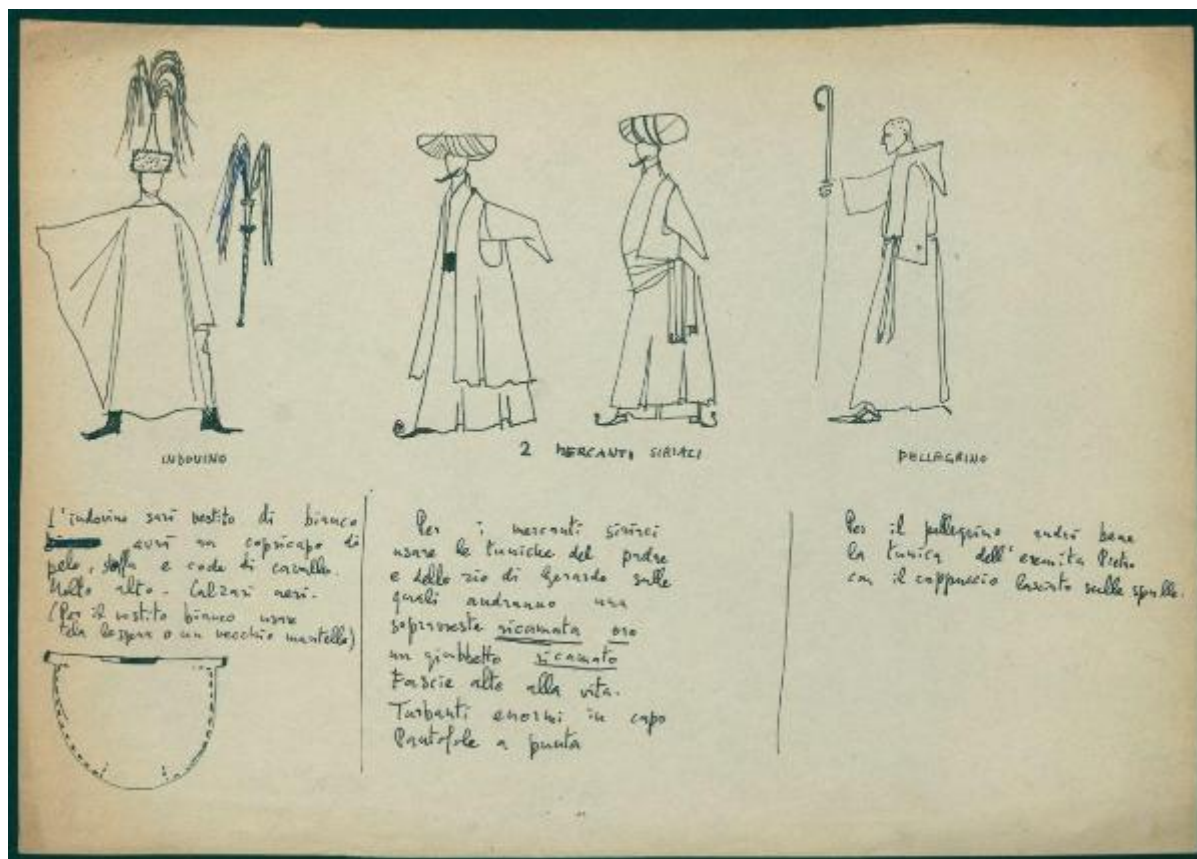 INDOVINO
2 MERCANTI SIRIACI
PELLEGRINO
L'indovino sarà vestito di bianco
avrà un copricapo di
pelo, stoffa e code di cavallo.
Molto alto - Calzari neri.
(Per il vestito bianco usare
tela leggera o un vecchio mantello)
Per i mercanti siriaci
usare le tuniche del padre
e dello zio di Gerardo sulle
quali andranno una
sopravveste ricamata oro
un giubbetto ricamato
Fascie alte alla vita.
Turbanti enormi in capo
Pantofole a punta
Per il pellegrino andrà bene
la tunica dell'eremita Pietro
con il cappuccio lasciato sulle spalle.